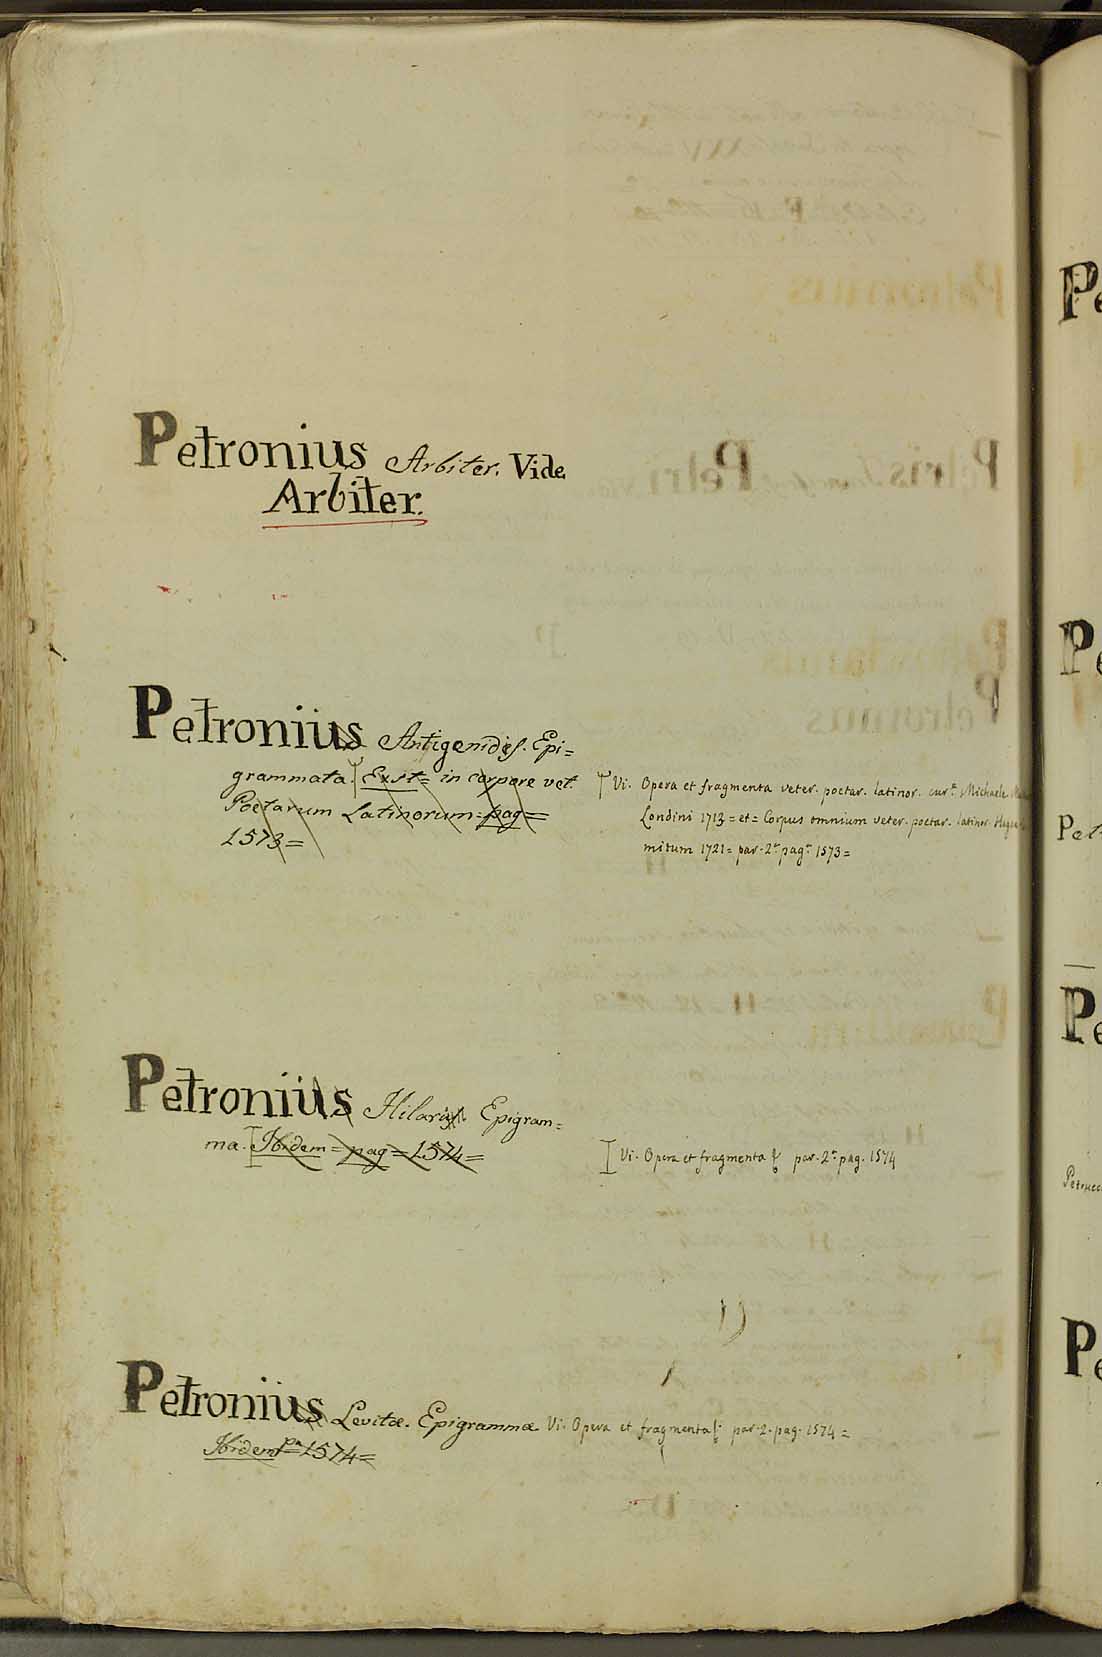 Petronius Arbiter. Vide
Arbiter.
Petronius Antigenides. Epi=
grammata. Exst= in corpore vet.
Poetarum Latinorum= pag=
1573=
Vi. Opera et fragmenta veter. poetar. latinor. cur.te Michaele
Londini 1713 = et = Corpus omnium veter. poetar. latinor.
mitum 1721 = par. 2.a pag.a 1573 =
Petronius Hilaris Epigram=
ma. Ibidem = pag = 1574 =
Vi. Opera et fragmenta par. 2.a pag. 1574
Petronius Levitæ. Epigrammæ Vi. Opera et fragmenta par. 2. pag. 1574 =
Ibidem pa = 1574 =